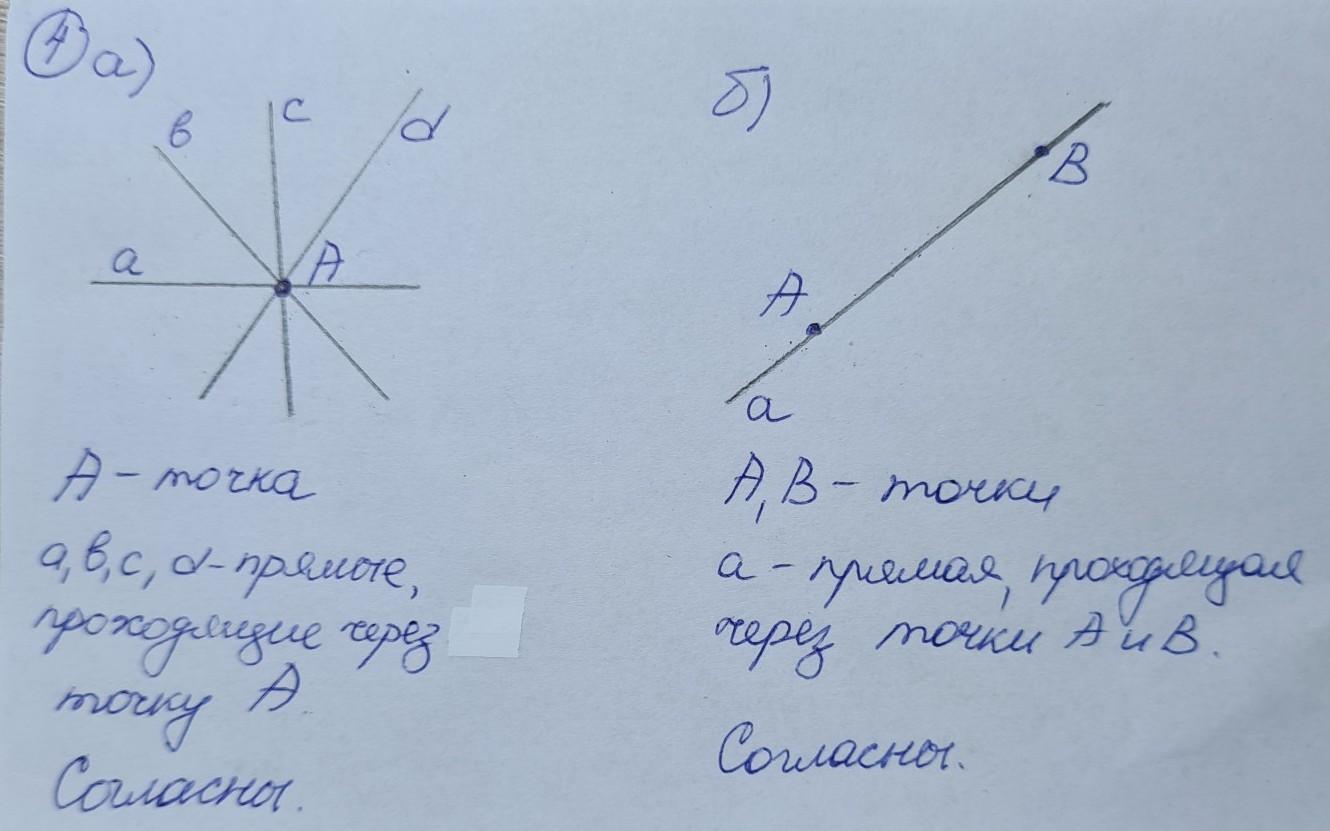 4 а)
в
с
d
а
А
А - точка
а, в, с, d - прямые,
проходящие через
точку А.
Согласны.
б)
В
А
а
А, В - точки
а - прямая, проходящая
через точки А и В.
Согласны.